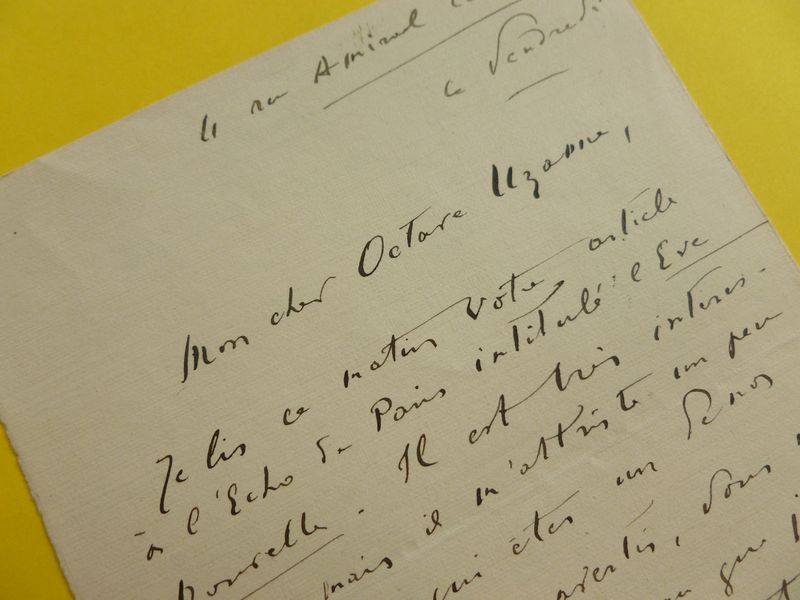 rue Amiral
ce Vendredi
Mon cher Octave Uzanne,
Je lis ce matin votre article
à l'Echo de Paris intitulé l'Eve
Nouvelle. Il est très intéres-
mais il m'attriste un peu
qui êtes un de nos
avertis, vous
que